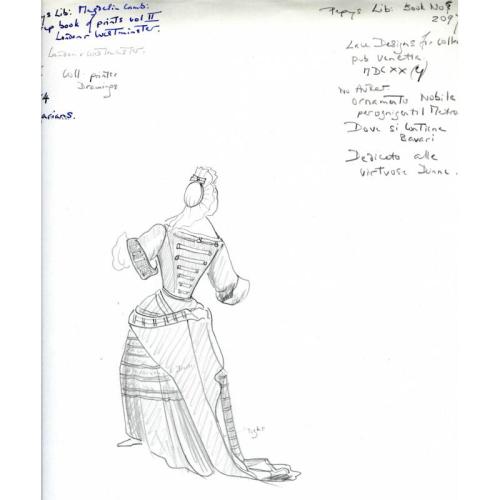 ys Lib: Magdelin Camb:
ap book of prints vol II
London & Westminster.
London & Westminster.
Coll printer
Drawings
4
arians.
Pepys Lib: Book No
209
Lace Designs for
pub Venetia
MDCXX
No Author
ornamento Nobile
per ogni gentil
Dove si contiene
Bavari
Dedicato alle
virtuose Donne.
Dark
Light